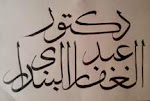 دكتور
عبد
الغفار البنداري